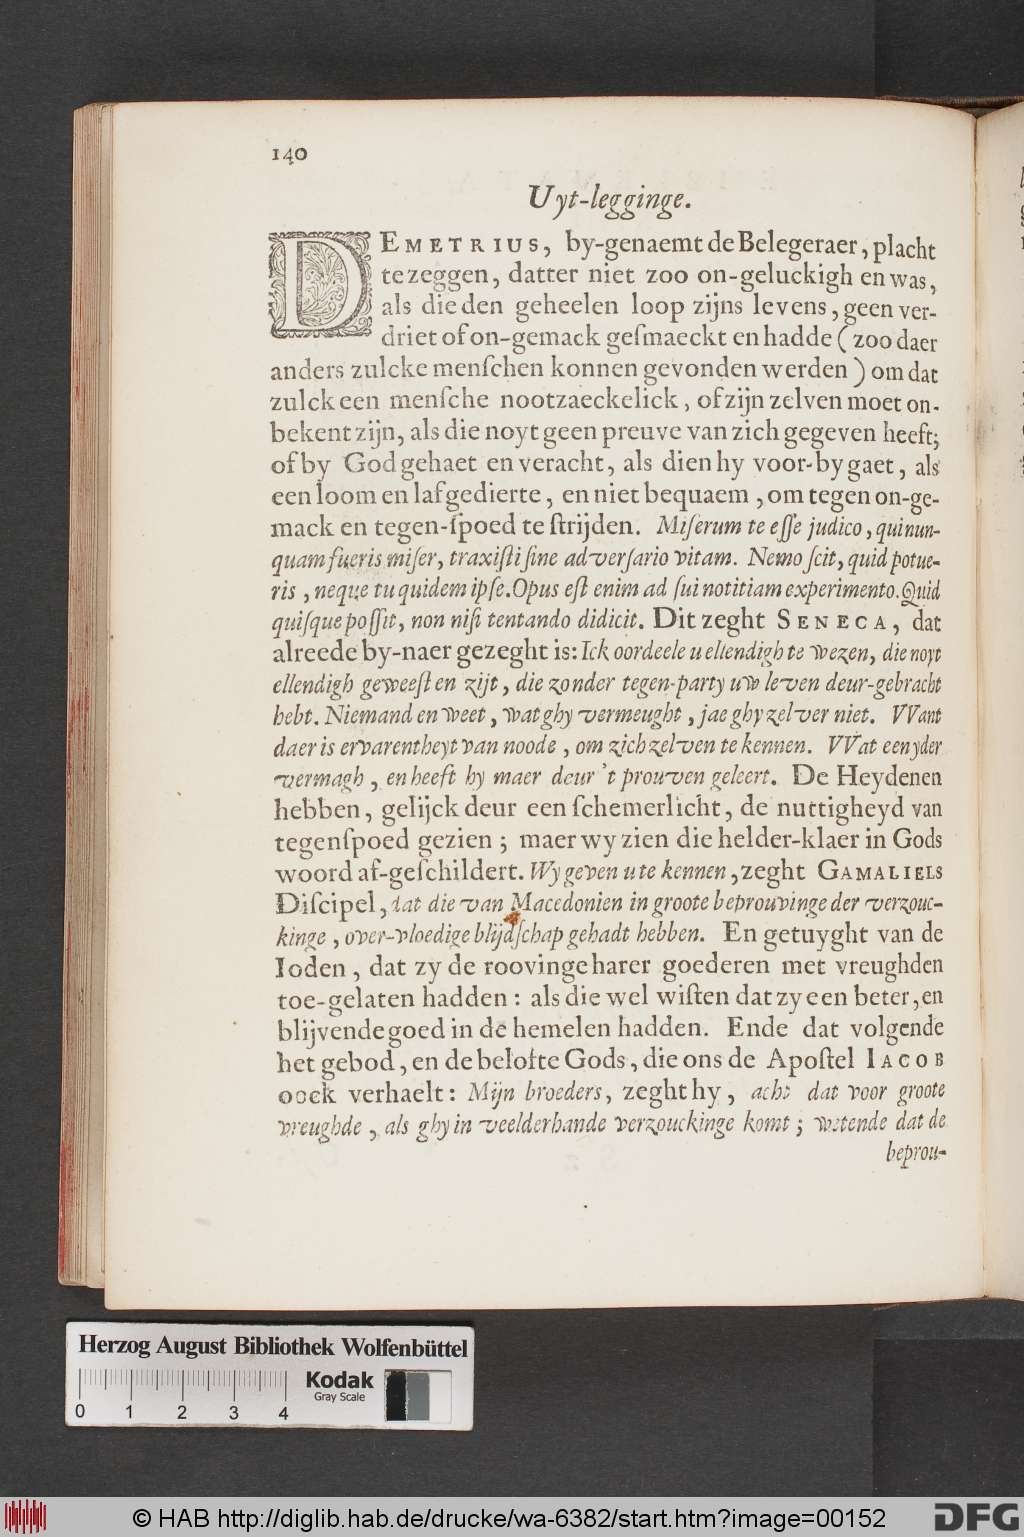 140
Uyt-legginge.
DEMETRIUS, by-genaemt de Belegeraer, placht
te zeggen, datter niet zoo on-geluckigh en was,
als die den geheelen loop zijns levens, geen ver-
driet of on-gemack geſmaeckt en hadde ( zoo daer
anders zulcke menſchen konnen gevonden werden ) om dat
zulck een menſche nootzaeckelick, of zijn zelven moet on-
bekent zijn, als die noyt geen preuve van zich gegeven heeft;
of by God gehaet en veracht, als dien hy voor-by gaet, als
een loom en laf gedierte, en niet bequaem, om tegen on-ge-
mack en tegen-ſpoed te ſtrijden. Miſerum te eſſe judico, qui nun-
quam fueris miſer, traxiſti ſine adverſario vitam. Nemo ſcit, quid potue-
ris, neque tu quidem ipſe. Opus eſt enim ad ſui notitiam experimento. Quid
quiſque poſſit, non niſi tentando didicit. Dit zeght SENECA, dat
alreede by-naer gezeght is: Ick oordeele u ellendigh te wezen, die noyt
ellendigh geweeſt en zijt, die zonder tegen-party uw leven deur-gebracht
hebt. Niemand en weet, wat ghy vermeught, jae ghy zelver niet. VVant
daer is ervarentheyt van noode, om zich zelven te kennen. VVat een yder
vermagh, en heeft hy maer deur 't prouven geleert. De Heydenen
hebben, gelijck deur een ſchemerlicht, de nuttigheyd van
tegenſpoed gezien ; maer wy zien die helder-klaer in Gods
woord af-geſchildert. Wy geven u te kennen, zeght GAMALIELS
Diſcipel, dat die van Macedonien in groote beprouvinge der verzouc-
kinge, over-vloedige blijdſchap gehadt hebben. En getuyght van de
Ioden, dat zy de roovinge harer goederen met vreughden
toe-gelaten hadden : als die wel wiſten dat zy een beter, en
blijvende goed in de hemelen hadden. Ende dat volgende
het gebod, en de belofte Gods, die ons de Apoſtel IACOB
oock verhaelt: Mijn broeders, zeght hy, acht dat voor groote
vreughde, als ghy in veelderhande verzouckinge komt ; wetende dat de
beprou-
Herzog August Bibliothek Wolfenbüttel
Kodak
Gray Scale
0 1 2 3 4
© HAB http://diglib.hab.de/drucke/wa-6382/start.htm?image=00152
DFG